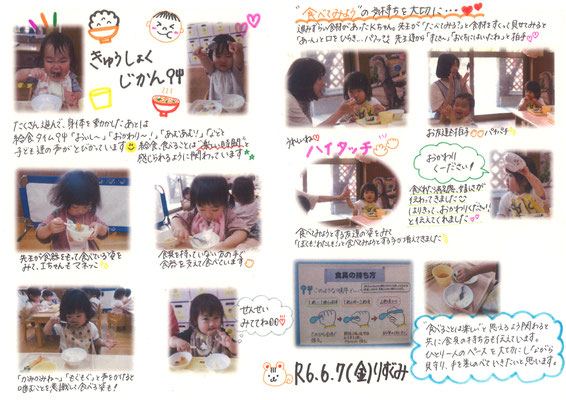 きゅうしょく
じかん
たくさん遊んで、身体を動かしたあとは
給食タイム 「おいし〜」「おかわり〜!」「あむあむ!」などと
子ども達の声がとびかっています 給食、食べることは"楽しい時間"と
感じれるように関わっています
先生が食器をもって食べている姿を
みて、Iちゃんもマネッこ
食具を持っていない方の手で
食器を支えて食べています
せんせい
みててね
「かみかみね〜」「もぐもぐ」と声をかけると
噛むことを意識して食べる姿も!
"食べてみよう"の気持ちを大切に…
「あ〜ん」と口をひらき…パクッ 先生達から「すごい」「おくちにはいったね」と拍手
お友達も拍手 パチパチ
うれしいね
ハイタッチ
おかわり
くーださい!
伝わってきました
はりきって、おかわりください!
と伝えてくれました
食べてみようとする友達の姿をみて
「ぼくも」「わたしも」と食べてみようとする子が増えてきました
食具の持ち方
「食べることは楽しい」と思えるよう関わると
共に、食具の持ち方も伝えています。
ひとり一人のペースを大切にしながら
見守り、手を差しのべていきたいと思います。
R6.6.7(金)りずみ